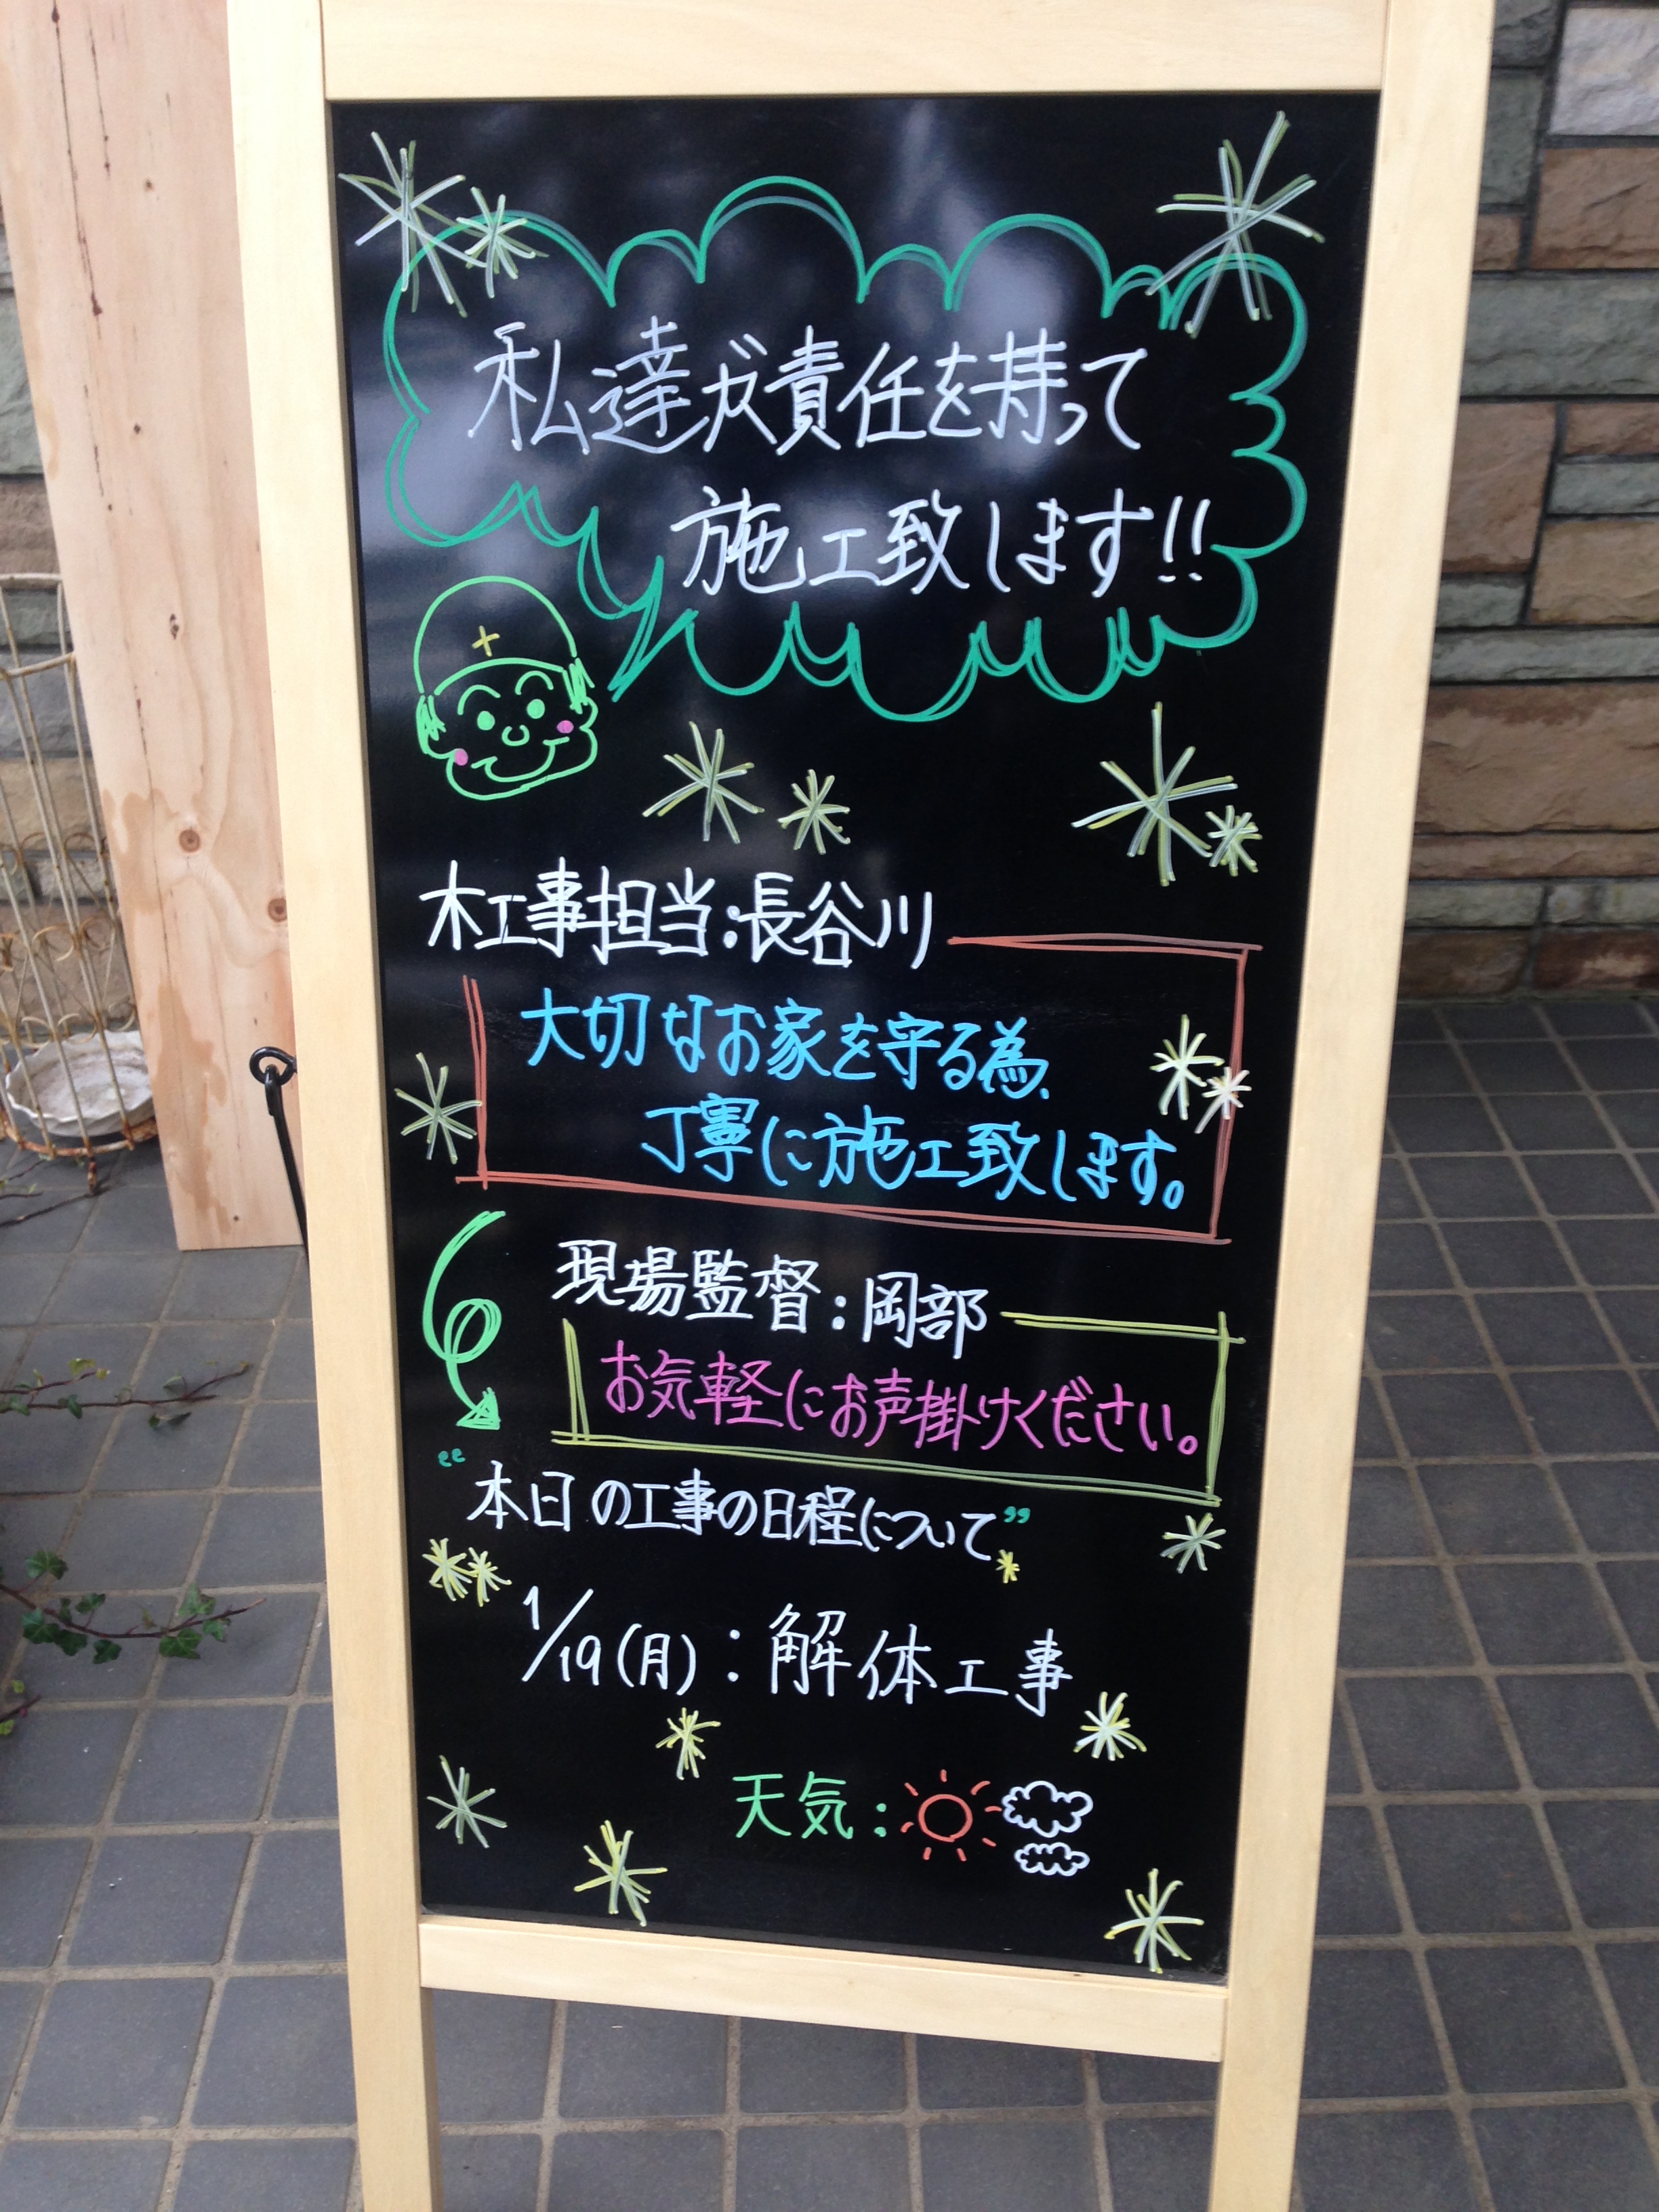 私達が責任を持って
施工致します!!
木工事担当:長谷川
大切なお家を守る為、
丁寧に施工致します。
現場監督:岡部
お気軽にお声掛けください。
“本日の工事の日程について”
1/19(月):解体工事
天気: